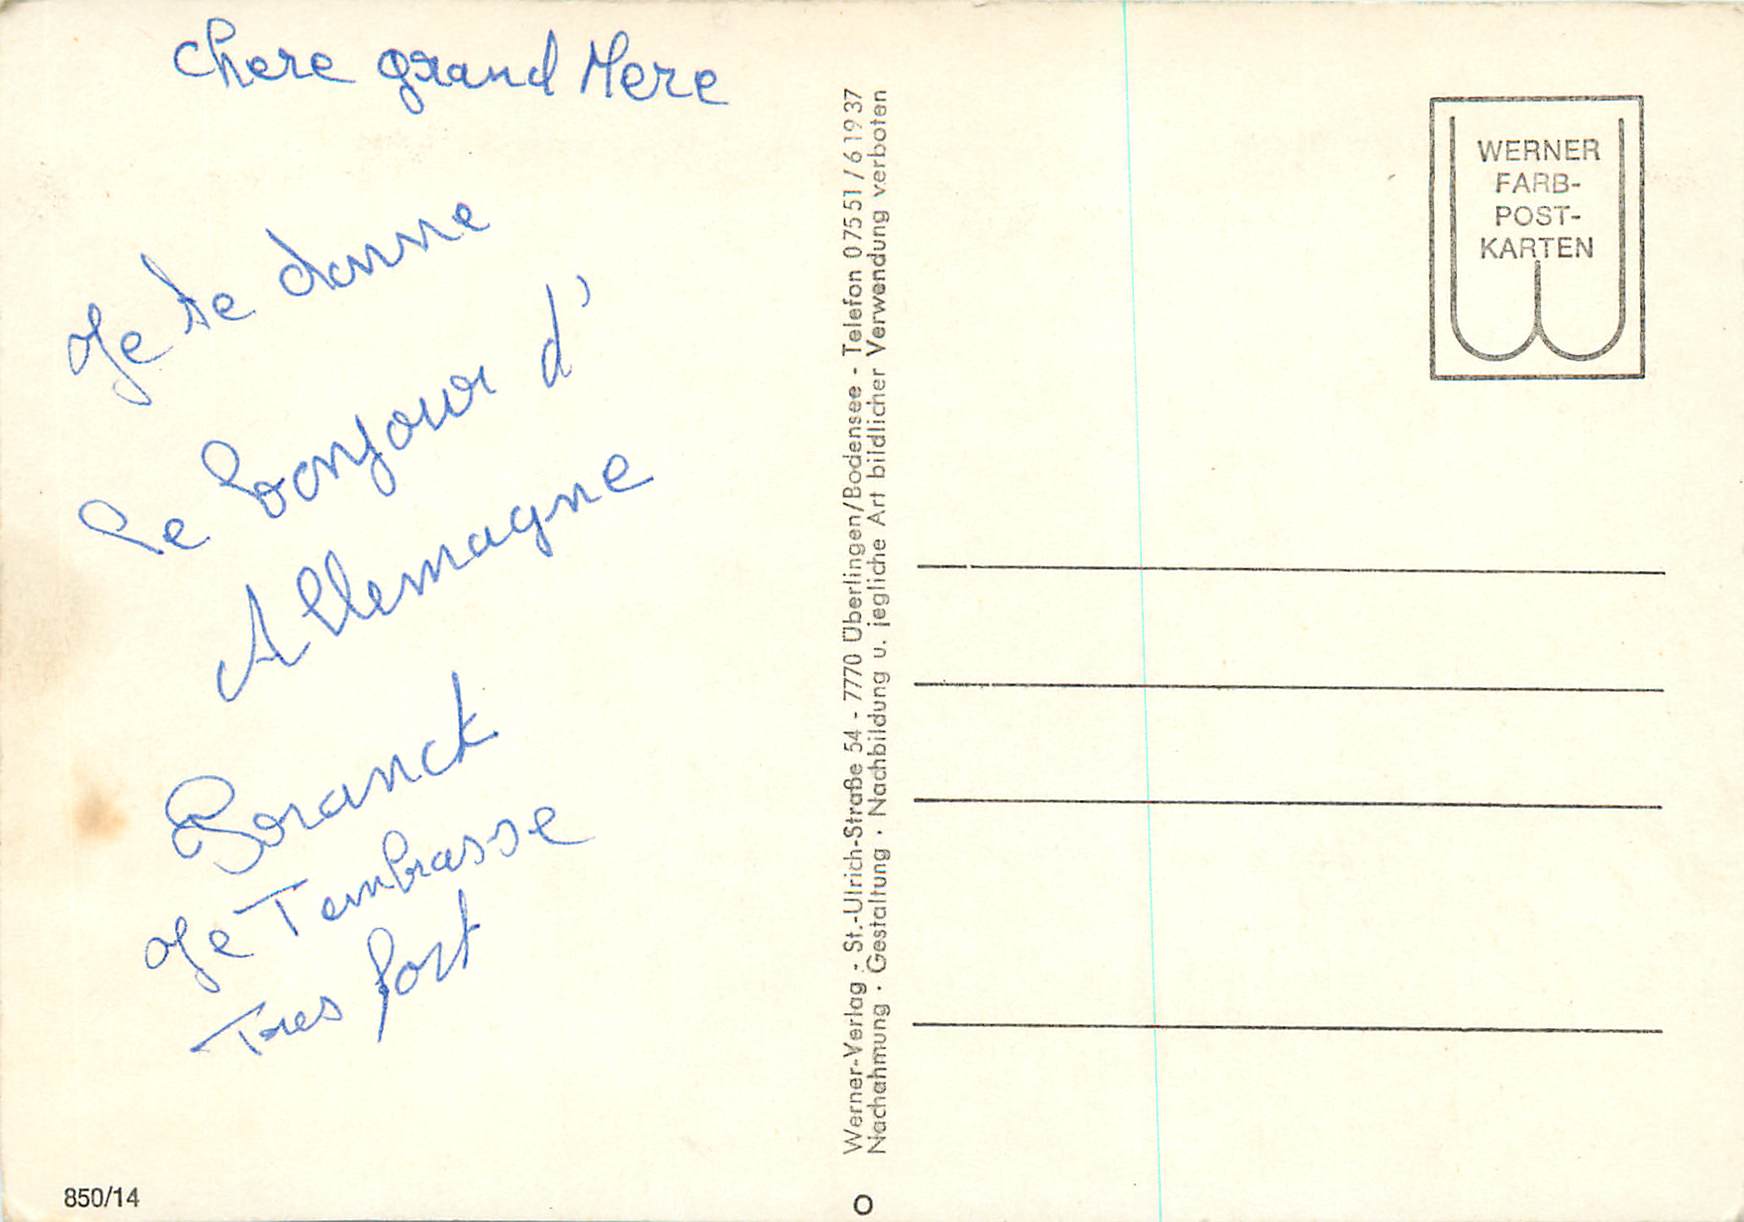 chere grand Mere
Je te donne
le bonjour d'
Allemagne
Je Tembrasse
Tres fort
850/14
Werner-Verlag - St.-Ulrich-Straße 54 - 7770 Überlingen/Bodensee - Telefon 07551/61937
Nachahmung · Gestaltung · Nachbildung u. jegliche Art bildlicher Verwendung verboten
O
WERNER
FARB-
POST-
KARTEN